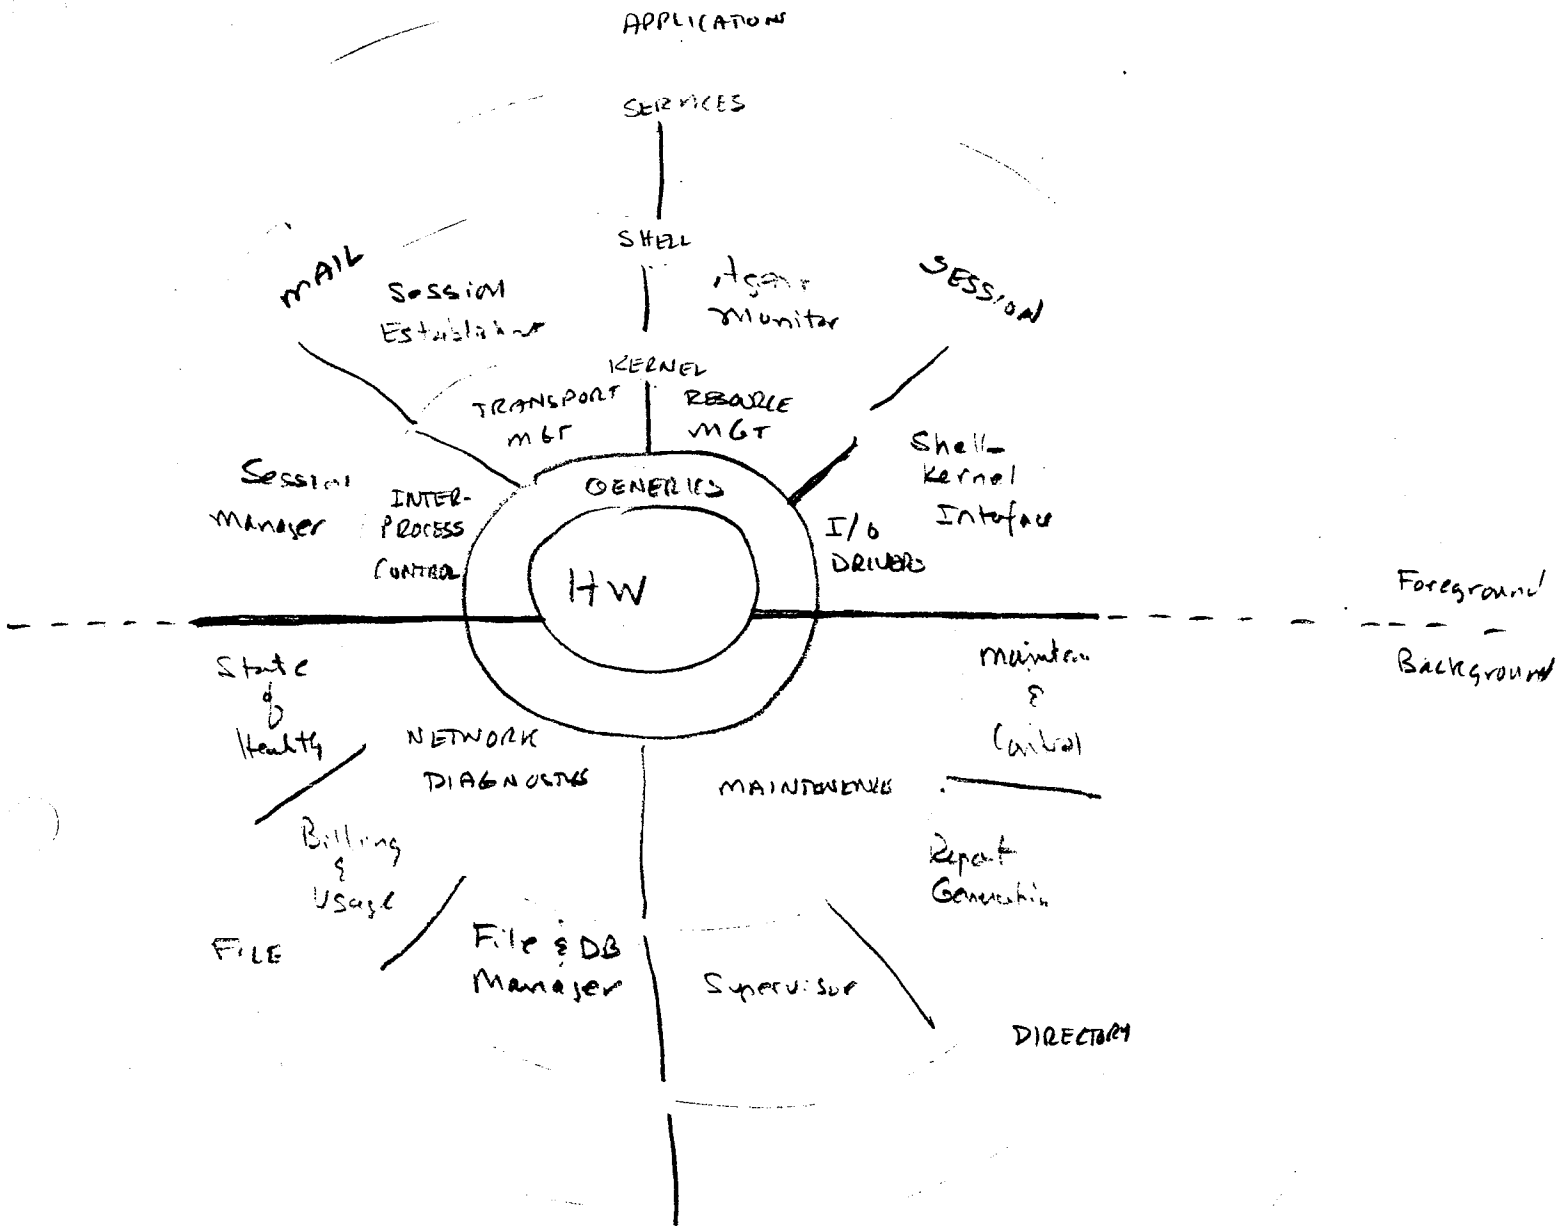 APPLICATIONS
SERVICES
SHELL
MAIL
SESSION
Session
Agent
Monitor
KERNEL
TRANSPORT
MGT
RESOURCE
MGT
Shell-
Kernel
Interface
Session
Manager
INTER-
PROCESS
CONTROL
GENERICS
I/O
DRIVERS
HW
Foreground
Background
State
of
Health
Maintain
&
Control
NETWORK
DIAGNOSTICS
MAINTENENCE
Billing
&
Usage
Report
Generation
FILE
File & DB
Manager
Supervisor
DIRECTORY